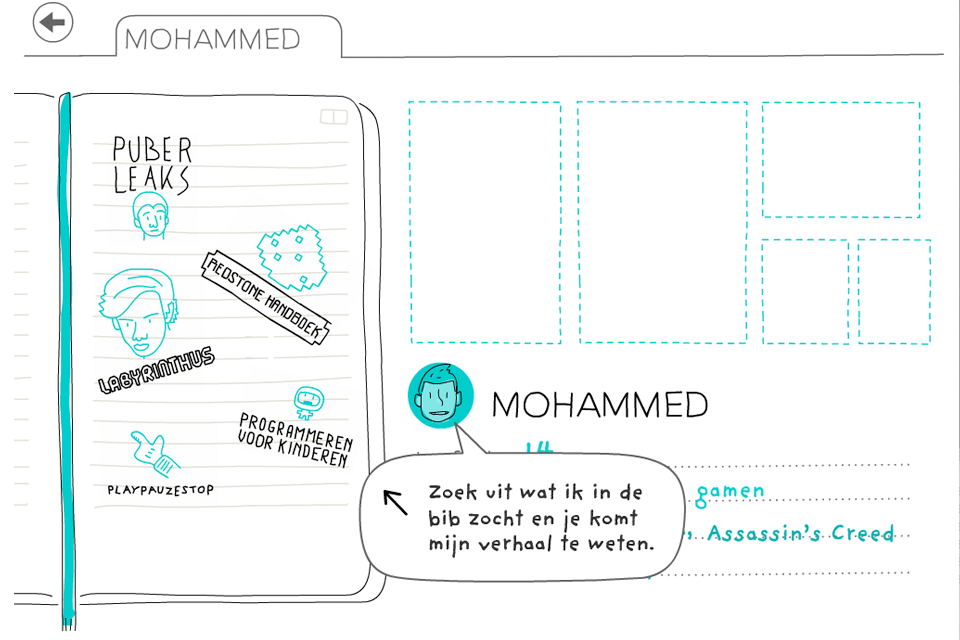 MOHAMMED
PUBER
LEAKS
REDSTONE HANDBOEK
LABYRINTHUS
PROGRAMMEREN
VOOR KINDEREN
PLAYPAUZESTOP
MOHAMMED
14
gamen
Assassin's Creed
Zoek uit wat ik in de
bib zocht en je komt
mijn verhaal te weten.